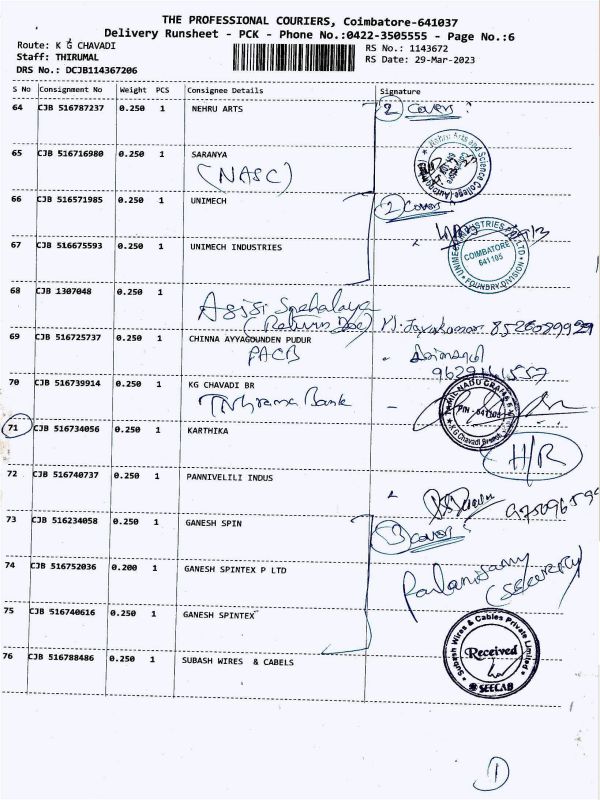 THE PROFESSIONAL COURIERS, Coimbatore-641037
Delivery Runsheet - PCK - Phone No.:0422-3505555 - Page No.:6
Route: K G CHAVADI
Staff: THIRUMAL
DRS No.: DCJB114367206
RS No.: 1143672
RS Date: 29-Mar-2023
S No Consignment No Weight PCS Consignee Details Signature
64 CJB 516787237 0.250 1 NEHRU ARTS 2 Covers
65 CJB 516716980 0.250 1 SARANYA
(NASC)
Nehru Arts and Science College
66 CJB 516571985 0.250 1 UNIMECH 2 Covers
67 CJB 516675593 0.250 1 UNIMECH INDUSTRIES
UNIMECH INDUSTRIES PVT LTD
COIMBATORE
641 105
FOUNDRY DIVISION
68 CJB 1307048 0.250 1
69 CJB 516725737 0.250 1 CHINNA AYYAGOUNDEN PUDUR
PACB
70 CJB 516739914 0.250 1 KG CHAVADI BR
Bank
TAMIL NADU GRAMA
PIN - 641105
K G Chavadi Branch
71 CJB 516734056 0.250 1 KARTHIKA
H/R
72 CJB 516740737 0.250 1 PANNIVELILI INDUS
73 CJB 516234058 0.250 1 GANESH SPIN 3 covers
74 CJB 516752036 0.200 1 GANESH SPINTEX P LTD
Palanisamy
(SECURITY)
75 CJB 516740616 0.250 1 GANESH SPINTEX
76 CJB 516788486 0.250 1 SUBASH WIRES & CABELS
Subash Wires & Cables Private Limited
Received
SEECAB
1